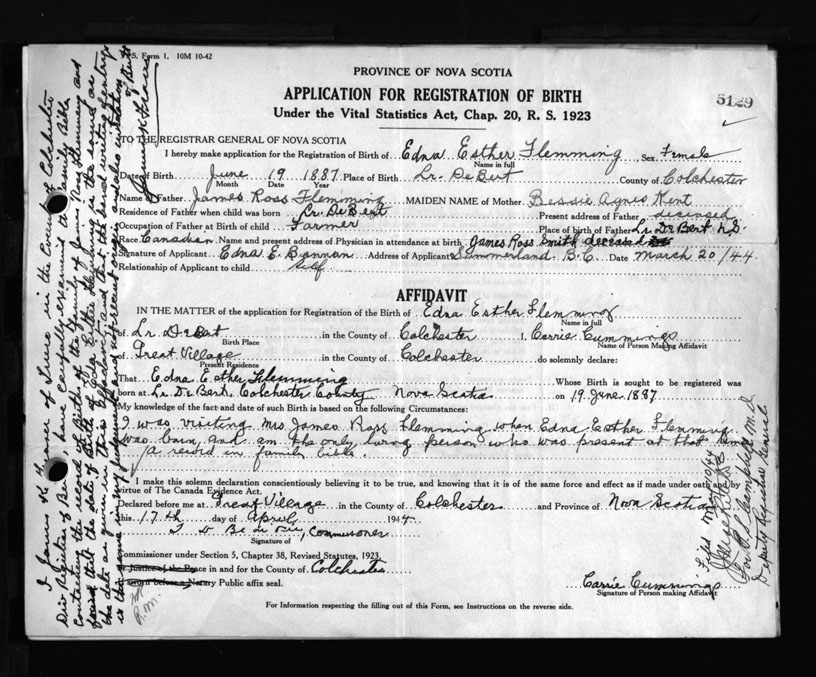 V.S. Form 1. 10M 10-42
PROVINCE OF NOVA SCOTIA
APPLICATION FOR REGISTRATION OF BIRTH
Under the Vital Statistics Act, Chap. 20, R. S. 1923
5129
TO THE REGISTRAR GENERAL OF NOVA SCOTIA
I hereby make application for the Registration of Birth of Edna Esther Flemming Sex Female
Name in full
Date of Birth June 19 1887 Place of Birth Lr. DeBert County of Colchester
Month Date Year
Name of Father James Ross Flemming MAIDEN NAME of Mother Bessie Agnes Kent
Residence of Father when child was born Lr. DeBert Present address of Father deceased
Occupation of Father at Birth of child Farmer Place of birth of Father Lr. DeBert N.S.
Race Canadian Name and present address of Physician in attendance at birth James Ross Smith deceased
Signature of Applicant Edna E. Bannan Address of Applicant Summerland B.C. Date March 20/44
Relationship of Applicant to child self
AFFIDAVIT
IN THE MATTER of the application for Registration of the Birth of Edna Esther Flemming
Name in full
of Lr. DeBert in the County of Colchester I, Carrie Cummings
Birth Place Name of Person Making Affidavit
of Great Village in the County of Colchester do solemnly declare:
Present Residence
That Edna Esther Flemming Whose Birth is sought to be registered was
born at Lr. De Bert, Colchester County Nova Scotia on 19 June 1887
My knowledge of the fact and date of such Birth is based on the following Circumstances:
I was visiting Mrs James Ross Flemming when Edna Esther Flemming
was born, and am the only living person who was present at that time
a record in family bible.
I make this solemn declaration conscientiously believing it to be true, and knowing that it is of the same force and effect as if made under oath and by
virtue of The Canada Evidence Act.
Declared before me at Great Village in the County of Colchester and Province of Nova Scotia
this 17th day of April 194
Commissioner
Signature of
Commissioner under Section 5, Chapter 38, Revised Statutes, 1923.
or Justice of the Peace in and for the County of Colchester
If sworn before a Notary Public affix seal.
Carrie Cummings
Signature of Person making Affidavit
For Information respecting the filling out of this Form, see Instructions on the reverse side.
I James H. of Truro in the County of Colchester
Div Registrar of Births have carefully examined the family Bible
Containing the record of Birth of the family of James Ross Flemming and
find that the date of Birth of Edna Esther Flemming is the same as
the date as given in this and that the
Filed May 10/44
Deputy Registrar General